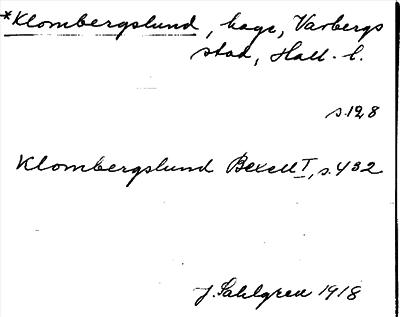 *Klombergslund, hage, Varbergs
stad, Hall. l.
s.128
Klombergslund Bexell I, s.432
J. Sahlgren 1918